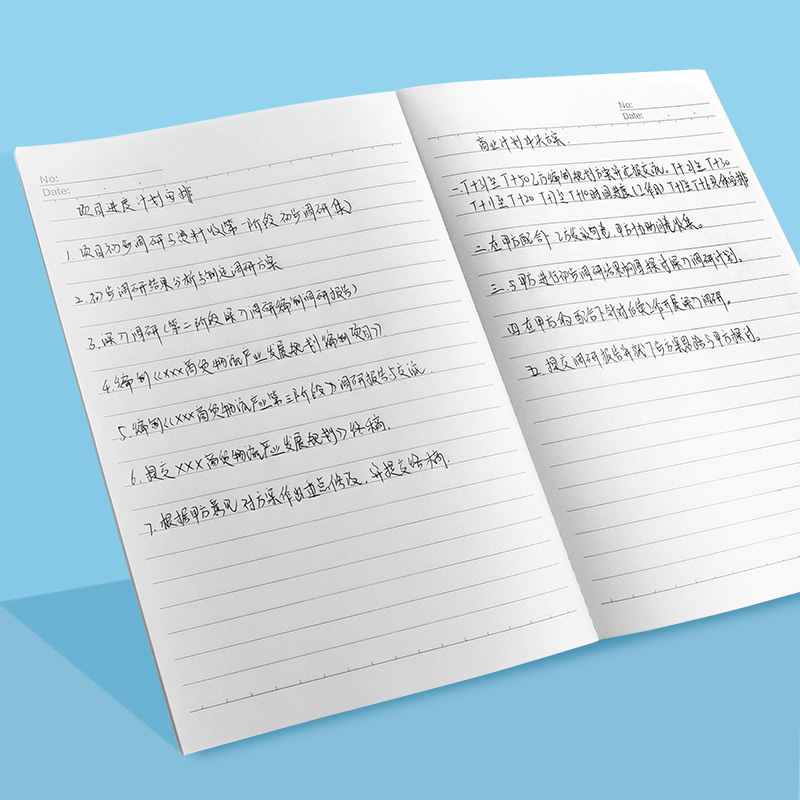 No:
Date:
项目进度计划安排
1. 项目初步调研与资料收(第一阶段 初步调研集)
2. 初步调研结果分析与制定调研方案
3. 深入调研(第二阶段 深入调研编制调研报告)
4. 编制《XXX商贸物流产业发展规划编制项目》
5. 编制《XXX商贸物流产业第三阶段》调研报告与交流.
6. 提交XXX商贸物流产业发展规划》终稿.
7. 根据甲方意见对方案作出重点修改,并提交终稿.
No:
Date:
商业计划 方案.
一. T+31至T+50 乙方编制规划方案并 交流。T+21至T+30
T+11至T+20 T+1至T+10时间进度(工作日) T+1至T+ 具体安排
二. 在甲方配合下 乙方 甲方协助 收集.
三. 与甲方进行初步调研结果 探讨深入调研计划.
四. 在甲方的配合下针对后续工作开展深入调研.
五. 提交调研报告并就下 方案思路与甲方探讨。